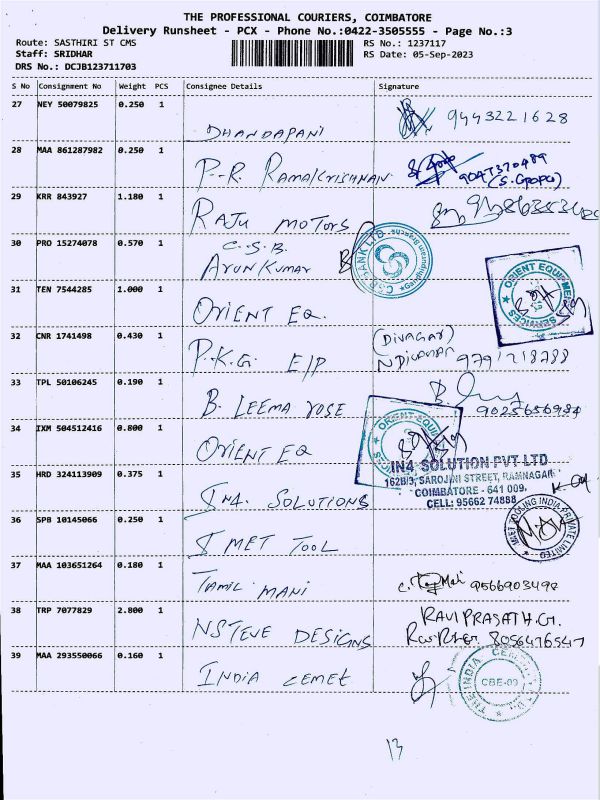 THE PROFESSIONAL COURIERS, COIMBATORE
Delivery Runsheet - PCX - Phone No.:0422-3505555 - Page No.:3
Route: SASTHIRI ST CMS
RS No.: 1237117
Staff: SRIDHAR
RS Date: 05-Sep-2023
DRS No.: DCJB123711703
S No Consignment No Weight PCS Consignee Details Signature
27 NEY 50079825 0.250 1
DHANDAPANI 9443221628
28 MAA 861287982 0.250 1
P.R. RAMAKRISHNAN 9047370489
(S.Gopu)
29 KRR 843927 1.180 1
RAJU MOTORS
30 PRO 15274078 0.570 1
C.S.B.
ARUN KUMAR
CSB BANK LTD.
31 TEN 7544285 1.000 1
ORIENT EQ.
ORIENT EQUIPMENT SERVICES
32 CNR 1741498 0.430 1
(DIVAGAR)
P.K.G. E/P 9791218788
33 TPL 50106245 0.190 1
B. LEEMA ROSE 9025656984
34 IXM 504512416 0.800 1
ORIENT EQ
ORIENT EQUIP
35 HRD 324113909 0.375 1
IN4 SOLUTION PVT LTD
162B/3, SAROJINI STREET, RAMNAGAR
COIMBATORE - 641 009.
CELL: 95662 74888
IN4. SOLUTIONS
36 SPB 10145066 0.250 1
MET TOOL
TOOLING INDIA PRIVATE LIMITED
37 MAA 103651264 0.180 1
TAMIL MANI 9566903492
38 TRP 7077829 2.800 1
RAVI PRASATH.G.
NSTEVE DESIGNS 8056476547
39 MAA 293550066 0.160 1
INDIA CEMET
THE INDIA CEMENTS
CBE-09
13